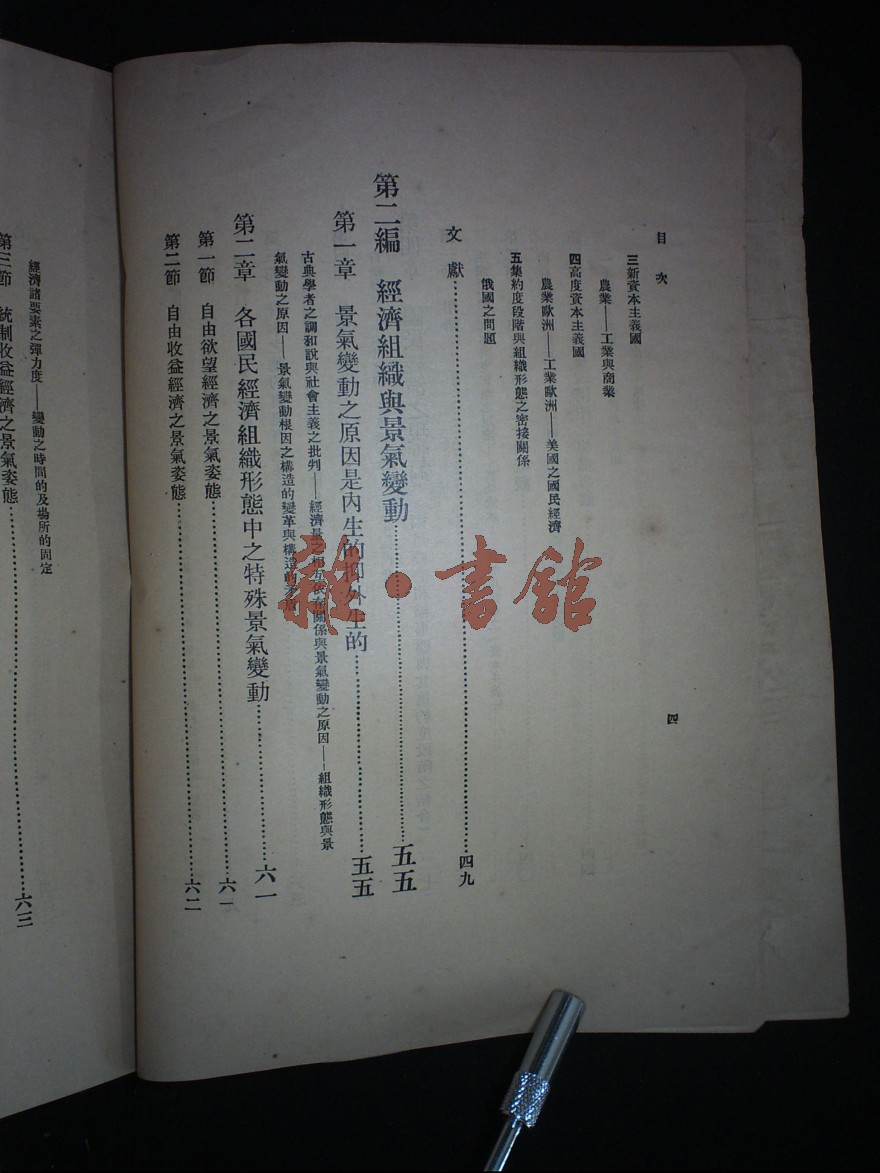 目次
四
三新資本主義國
農業——工業與商業
四高度資本主義國
農業歐洲——工業歐洲——美國之國民經濟
五集約度段階與組織形態之密接關係
俄國之問題
文獻……四九
第二編　經濟組織與景氣變動……五五
第一章　景氣變動之原因是內生的抑外生的……五五
古典學者之調和說與社會主義之批判——經濟量之相互依存關係與景氣變動之原因——組織形態與景
氣變動之原因——景氣變動根因之構造的變革與構造的矛盾
第二章　各國民經濟組織形態中之特殊景氣變動……六一
第一節　自由欲望經濟之景氣姿態……六一
第二節　自由收益經濟之景氣姿態……六二
經濟諸要素之彈力度——變動之時間的及場所的固定
第三節　統制收益經濟之景氣姿態……六三
雜·書館